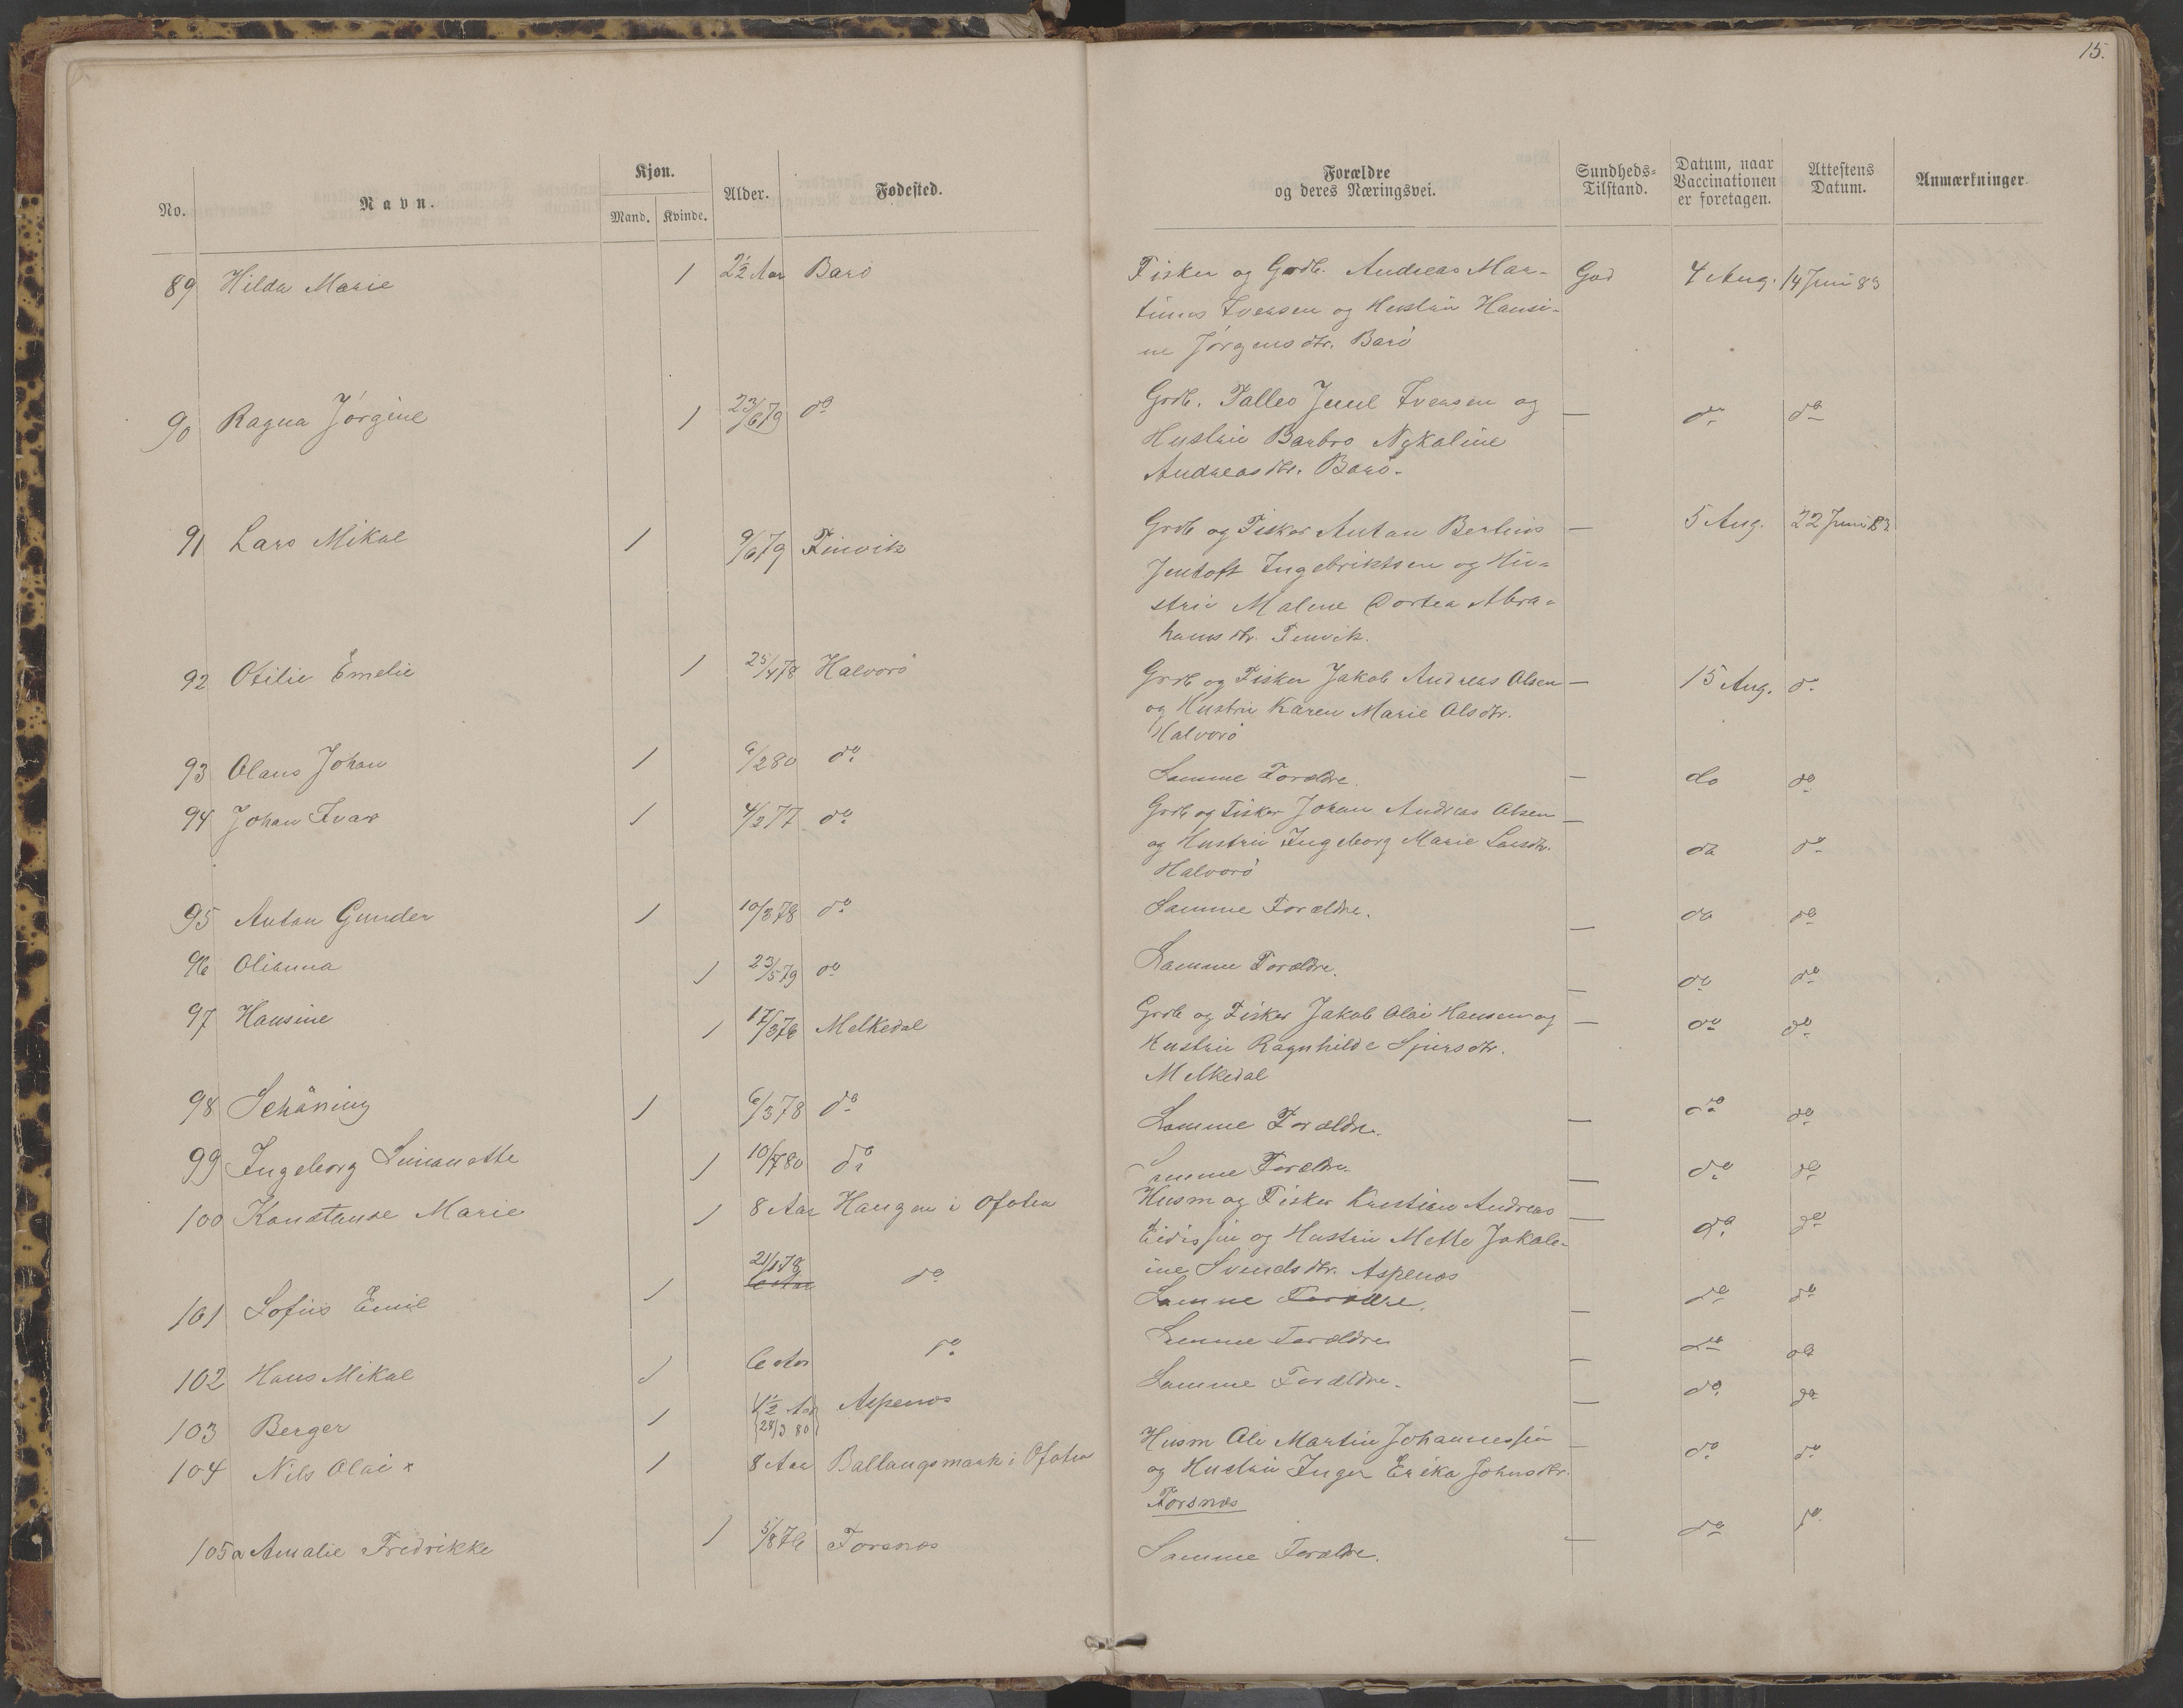 15.
No. Navn. Kjøn. Mand. Kvinde. Alder. Fødested. Forældre og deres Næringsvei. Sundheds-Tilstand. Datum, naar Vaccinationen er foretagen. Attestens Datum. Anmærkninger.
89 Hilda Marie 1 2½ Aar Barö Fisker og Grdb. Andreas Mar- God 4 Aug. 14 Juni 83
tinus Iversen og Hustru Hansi-
ne Jörgensdtr. Barö
90 Ragna Jörgine 1 23/6 79 do Grdb. Falles Juul Iversen og — do do
Hustru Barbro Nykaline
Andreasdtr. Barö.
91 Lars Mikal 1 9/6 79 Finvik Grdb og Fisker Anton Bertius — 5 Aug. 22 Juni 83
Jentoft Ingebriktsen og Hu-
stru Malene Dortea Abra-
hamsdtr. Finvik.
92 Otilie Emelie 1 25/4 78 Halvorö Grdb og Fisker Jakob Andreas Olsen — 15 Aug. do
og Hustru Karen Marie Olsdtr.
Halvorö
93 Olaus Johan 1 6/2 80 do Samme Forældre. — do do
94 Johan Ivar 1 4/2 77 do Grdb og Fisker Johan Andreas Olsen — do do
og Hustru Ingeborg Marie Larsdtr.
Halvorö
95 Anton Gunder 1 10/3 78 do Samme Forældre. — do do
96 Olianna 1 23/5 79 do Samme Forældre. — do do
97 Hansine 1 17/3 76 Melkedal Grdb og Fisker Jakob Olai Hansen og — do do
Hustru Ragnhilde Sjursdtr.
Melkedal
98 Schåning 1 6/3 78 do Samme Forældre. — do do
99 Ingeborg Simanette 1 10/7 80 do Samme Forældre. — do do
100 Konstanse Marie 1 8 Aar Haugen i Ofoten Husm og Fisker Kristian Andreas — do do
Eidissen og Hustru Mette Jakob-
ine Svendsdtr. Aspenæs
101 Sofus Emil 1 21/1 78 6 Aar do Samme Forældre. — do do
102 Hans Mikal 1 6 Aar do Samme Forældre — do do
103 Berger 1 1½ Aar 28/3 80 Aspenæs Samme Forældre. — do do
104 Nils Olai x 1 8 Aar Ballangsmark i Ofoten Husm Ole Martin Johannessen — do do
og Hustru Inger Erika Johnsdtr.
Forsnæs
105a Amalie Fredrikke 1 5/8 76 Forsnæs Samme Forældre. — do do